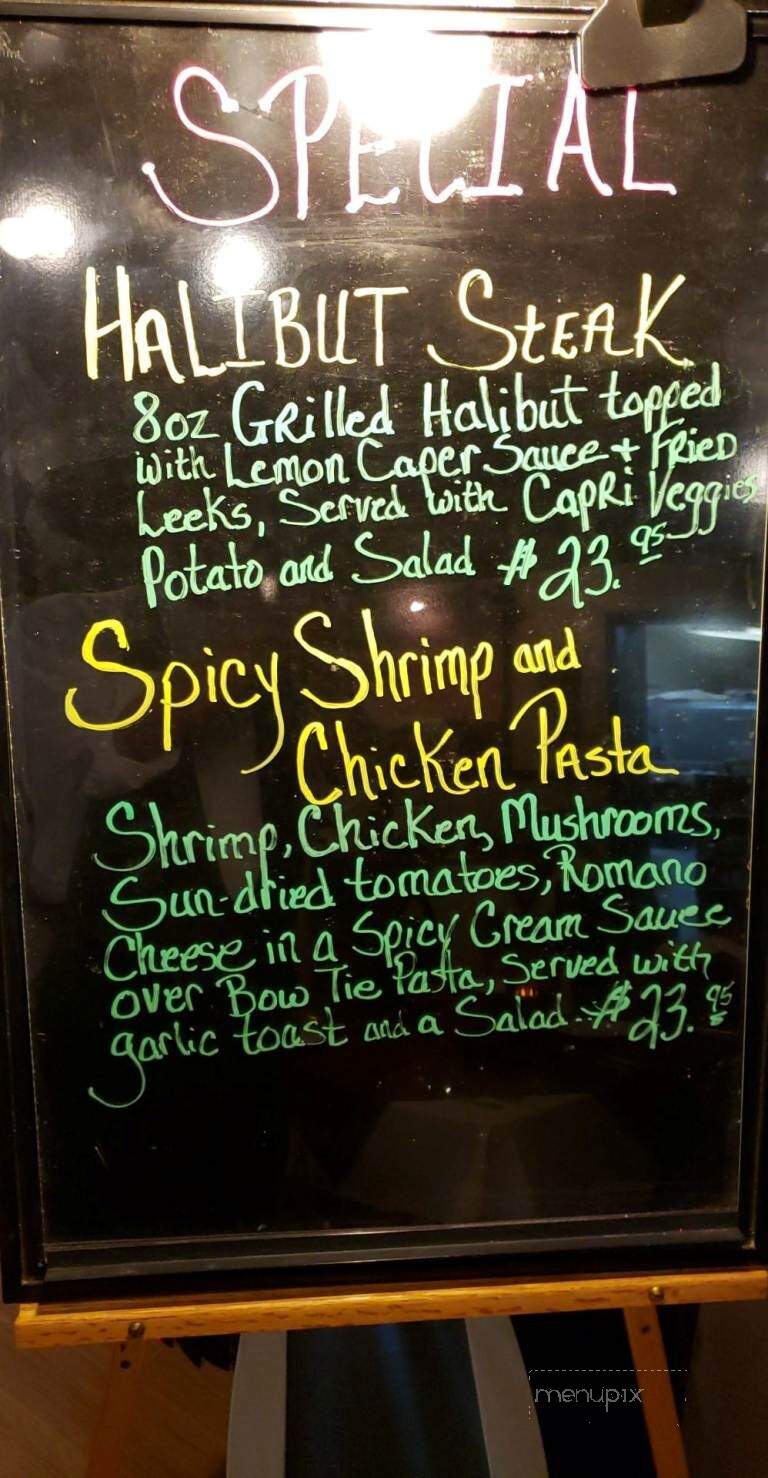 SPECIAL
HALIBUT StEAK
8oz GRilled Halibut topped
with Lemon Caper Sauce + FRiED
Leeks, Served with CapRi Veggies
Potato and Salad $23.95
Spicy Shrimp and
Chicken Pasta
Shrimp, Chicken, Mushrooms,
Sun-dried tomatoes, Romano
Cheese in a Spicy Cream Sauce
over Bow Tie Pasta, Served with
garlic toast and a Salad $23.95
menupix